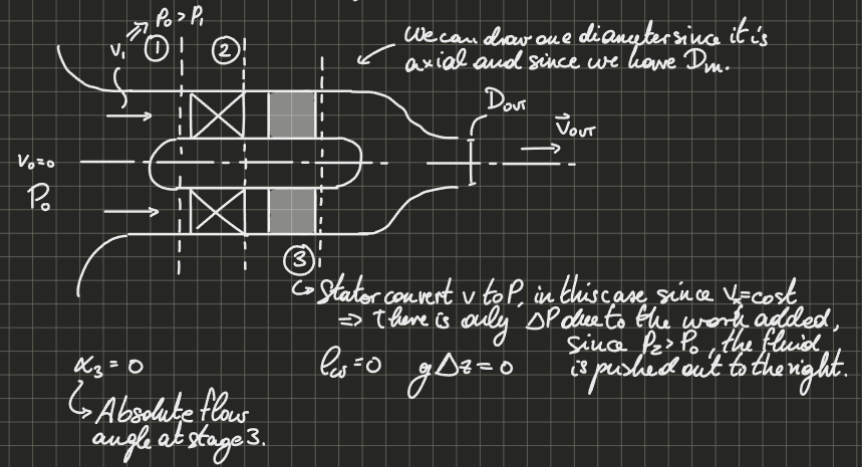 P₀ > P₁
V₁
①
②
We can draw one diameter since it is
axial and since we have Dm.
DOUT
V⃗OUT
V₀=0
P₀
③
↳ Stator convert v to P, in this case since =cost
⇒ There is only ΔP due to the work added,
since P₂>P₀, the fluid
is pushed out to the right.
α₃ = 0
=0 gΔz = 0
↳ Absolute flow
angle at stage 3.